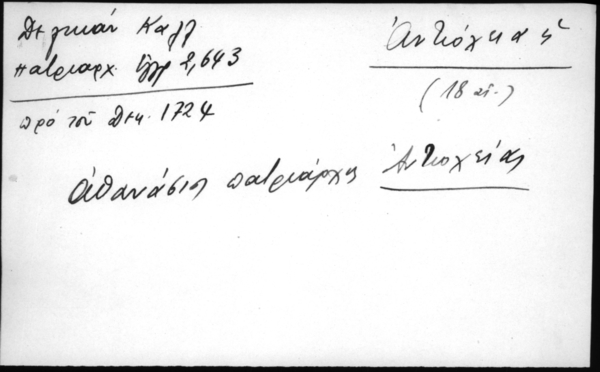 Δελικάν Καλλ
πατριαρχ. ἔγγρ 2,643
πρὸ τοῦ Δεκ. 1724
Ἀντιόχεια
(18 αἰ.)
ἀθανάσιος πατριάρχης Ἀντιοχείας